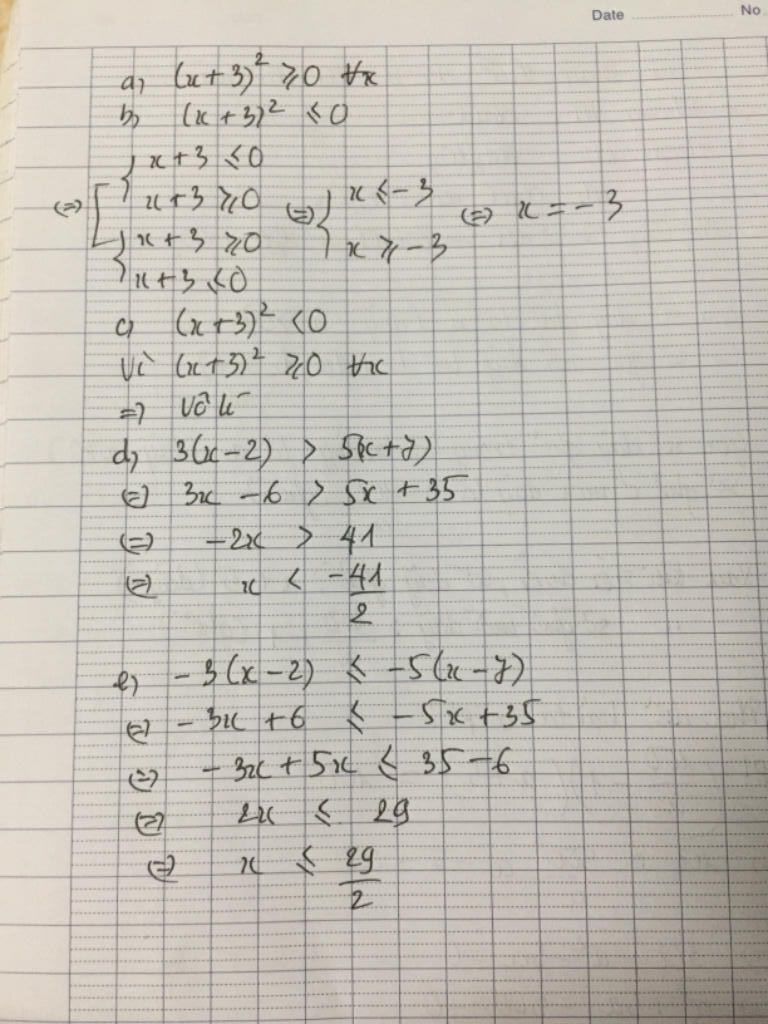 Date No
a) (x+3)² ⩾ 0 ∀x
b) (x+3)² ⩽ 0
x+3 ⩽ 0
x+3 ⩾ 0
x+3 ⩾ 0
x+3 ⩽ 0
⇔ [ { { ⇔ { x ⩽ -3
x ⩾ -3
⇔ x = -3
c) (x+3)² < 0
Vì (x+3)² ⩾ 0 ∀x
=> Vô lí
d) 3(x-2) > 5(x+7)
⇔ 3x - 6 > 5x + 35
⇔ -2x > 41
⇔ x < -41/2
e) -3(x-2) ⩽ -5(x-7)
⇔ -3x + 6 ⩽ -5x + 35
⇔ -3x + 5x ⩽ 35 - 6
⇔ 2x ⩽ 29
⇔ x ⩽ 29/2